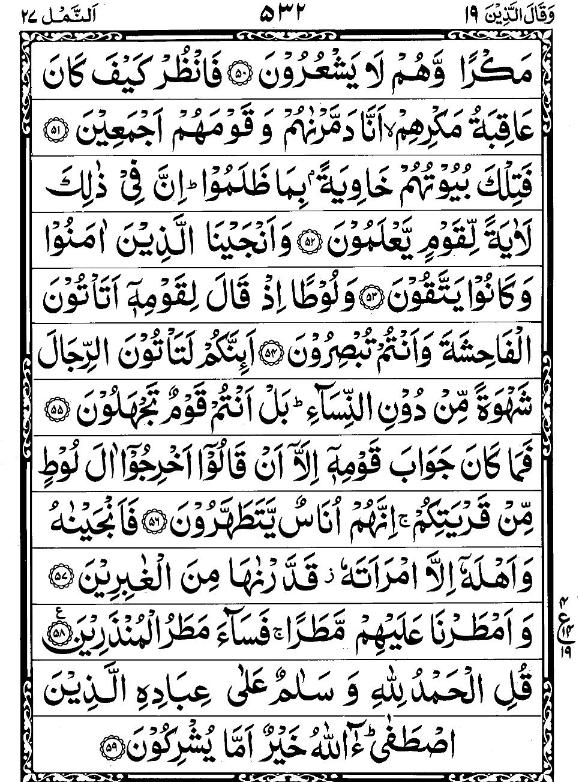 وَقَالَ الَّذِيْنَ ١٩ ٥٣٢ اَلنَّمْل ٢٧
مَكْرًا وَّهُمْ لَا يَشْعُرُوْنَ ۝٥٠ فَانْظُرْ كَيْفَ كَانَ
عَاقِبَةُ مَكْرِهِمْ ۙ اَنَّا دَمَّرْنٰهُمْ وَ قَوْمَهُمْ اَجْمَعِيْنَ ۝٥١
فَتِلْكَ بُيُوْتُهُمْ خَاوِيَةًۢ بِمَا ظَلَمُوْا ؕ اِنَّ فِيْ ذٰلِكَ
لَاٰيَةً لِّقَوْمٍ يَّعْلَمُوْنَ ۝٥٢ وَاَنْجَيْنَا الَّذِيْنَ اٰمَنُوْا
وَكَانُوْا يَتَّقُوْنَ ۝٥٣ وَلُوْطًا اِذْ قَالَ لِقَوْمِهٖٓ اَتَاْتُوْنَ
الْفَاحِشَةَ وَاَنْتُمْ تُبْصِرُوْنَ ۝٥٤ اَىِٕنَّكُمْ لَتَاْتُوْنَ الرِّجَالَ
شَهْوَةً مِّنْ دُوْنِ النِّسَآءِ ؕ بَلْ اَنْتُمْ قَوْمٌ تَجْهَلُوْنَ ۝٥٥
فَمَا كَانَ جَوَابَ قَوْمِهٖٓ اِلَّاۤ اَنْ قَالُوْۤا اَخْرِجُوْۤا اٰلَ لُوْطٍ
مِّنْ قَرْيَتِكُمْ ۚ اِنَّهُمْ اُنَاسٌ يَّتَطَهَّرُوْنَ ۝٥٦ فَاَنْجَيْنٰهُ
وَاَهْلَهٗٓ اِلَّا امْرَاَتَهٗ ؗ قَدَّرْنٰهَا مِنَ الْغٰبِرِيْنَ ۝٥٧
وَ اَمْطَرْنَا عَلَيْهِمْ مَّطَرًا ۚ فَسَآءَ مَطَرُ الْمُنْذَرِيْنَ ۝٥٨ ع
٤
ع
١٤
١٩
قُلِ الْحَمْدُ لِلّٰهِ وَ سَلٰمٌ عَلٰى عِبَادِهِ الَّذِيْنَ
اصْطَفٰى ؕ ءٰٓاللّٰهُ خَيْرٌ اَمَّا يُشْرِكُوْنَ ۝٥٩